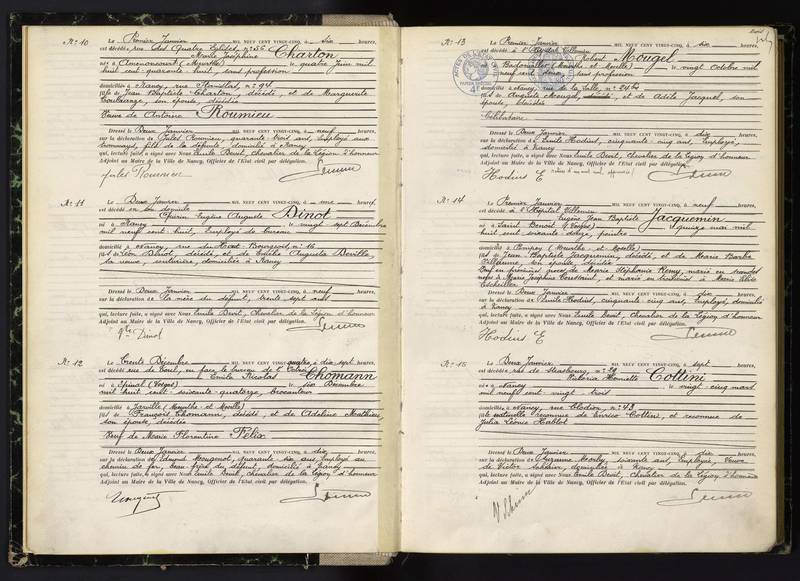 N° 10
Le Premier Janvier MIL NEUF CENT VINGT-CINQ, à dix heures,
est décédée rue des Quatre Églises, n° 56
Marie Joséphine Charton
née à Amenoncourt (Meurthe) le quatre Juin mil
huit cent quarante huit, sans profession
domiciliée à Nancy, rue Stanislas, n° 94
fille de Jean Baptiste Charton, décédé, et de Marguerite
son épouse, décédée
Veuve de Antoine Roumieu
Dressé le Deux Janvier MIL NEUF CENT VINGT-CINQ, à neuf heures,
sur la déclaration de Jules Roumieu, quarante trois ans, employé aux
fils de la défunte, domicilié à Nancy
qui, lecture faite, a signé avec Nous Émile Devit, chevalier de la Légion d'honneur
Adjoint au Maire de la Ville de Nancy, Officier de l'État civil par délégation.
Jules Roumieu
N° 11
Le Deux Janvier MIL NEUF CENT VINGT-CINQ, à une heure
est décédé en son domicile
Eugène Auguste Dinot
né à Nancy le vingt sept Décembre
mil neuf cent huit, Employé de bureau
domicilié à Nancy, rue du Haut Bourgeois, n° 16
fils de Léon Dinot, décédé, et de Augusta
sa veuve, couturière, domiciliée à Nancy
Dressé le Deux Janvier MIL NEUF CENT VINGT-CINQ, à neuf heures,
sur la déclaration de la mère du défunt, trente sept ans
qui, lecture faite, a signé avec Nous Émile Devit, Chevalier de la Légion d'honneur
Adjoint au Maire de la Ville de Nancy, Officier de l'État civil par délégation.
Vve Dinot
N° 12
Le Trente Décembre MIL NEUF CENT VINGT-quatre, à dix sept heures,
est décédé rue de Toul, en face le bureau de l'Octroi
Émile Nicolas Thomann
né à Épinal (Vosges) le six Décembre
mil huit cent soixante quatorze, brocanteur
domicilié à Jarville (Meurthe et Moselle)
fils de François Thomann, décédé, et de Adeline Mathieu
son épouse, décédée
Veuf de Marie Florentine Félix
Dressé le Deux Janvier MIL NEUF CENT VINGT-CINQ, à dix heures,
sur la déclaration de Edmond Mougenot, quarante six ans, Employé au
chemin de fer, beau frère du défunt, domicilié à Nancy
qui, lecture faite, a signé avec Nous Émile Devit, chevalier de la Légion d'honneur
Adjoint au Maire de la Ville de Nancy, Officier de l'État civil par délégation.
N° 13
Le Premier Janvier MIL NEUF CENT VINGT-CINQ, à dix heures,
est décédé à l'Hôpital Villemin
Robert Mougel
né à Badonviller (Meurthe et Moselle) le vingt Octobre mil
neuf cent onze, sans profession
domicilié à Nancy, rue de la Salle, n° 24
fils de Auguste Mougel, décédé, et de Adèle Jacquel, son
épouse, décédée
Célibataire
Dressé le Deux Janvier MIL NEUF CENT VINGT-CINQ, à dix heures,
sur la déclaration de Émile Hodiux, cinquante cinq ans, Employé,
domicilié à Nancy
qui, lecture faite, a signé avec Nous Émile Devit, chevalier de la Légion d'honneur
Adjoint au Maire de la Ville de Nancy, Officier de l'État civil par délégation.
Hodiux E
N° 14
Le Premier Janvier MIL NEUF CENT VINGT-CINQ, à neuf heures,
est décédé à l'Hôpital Villemin
Eugène Jean Baptiste Jacquemin
né à Saint Benoit (Vosges) le quinze mai mil
huit cent soixante douze, peintre
domicilié à Pompey (Meurthe et Moselle)
fils de Jean Baptiste Jacquemin, décédé, et de Marie Barbe
son épouse, décédée
Veuf en premières noces de Marie Stéphanie Remy, marié en secondes
noces à Marie Joséphine Toussaint, et marié en troisièmes à Marie
Dressé le Deux Janvier MIL NEUF CENT VINGT-CINQ, à dix heures,
sur la déclaration de Émile Hodiux, cinquante cinq ans, Employé, domicilié
à Nancy
qui, lecture faite, a signé avec Nous Émile Devit, chevalier de la Légion d'honneur
Adjoint au Maire de la Ville de Nancy, Officier de l'État civil par délégation.
Hodiux E
N° 15
Le Deux Janvier MIL NEUF CENT VINGT-CINQ, à sept heures,
est décédée rue de Strasbourg, n° 29
Victoria Henriette Cottini
née à Nancy le vingt cinq mars
mil neuf cent vingt trois
domiciliée à Nancy, rue Clodion, n° 43
fille naturelle reconnue de Enrico Cottini, et reconnue de
Julia Léonie Hablot
Dressé le Deux Janvier MIL NEUF CENT VINGT-CINQ, à dix heures,
sur la déclaration de Suzanne soixante ans, Employée, Veuve
de Victor domiciliée à Nancy
qui, lecture faite, a signé avec Nous Émile Devit, chevalier de la Légion d'honneur
Adjoint au Maire de la Ville de Nancy, Officier de l'État civil par délégation.